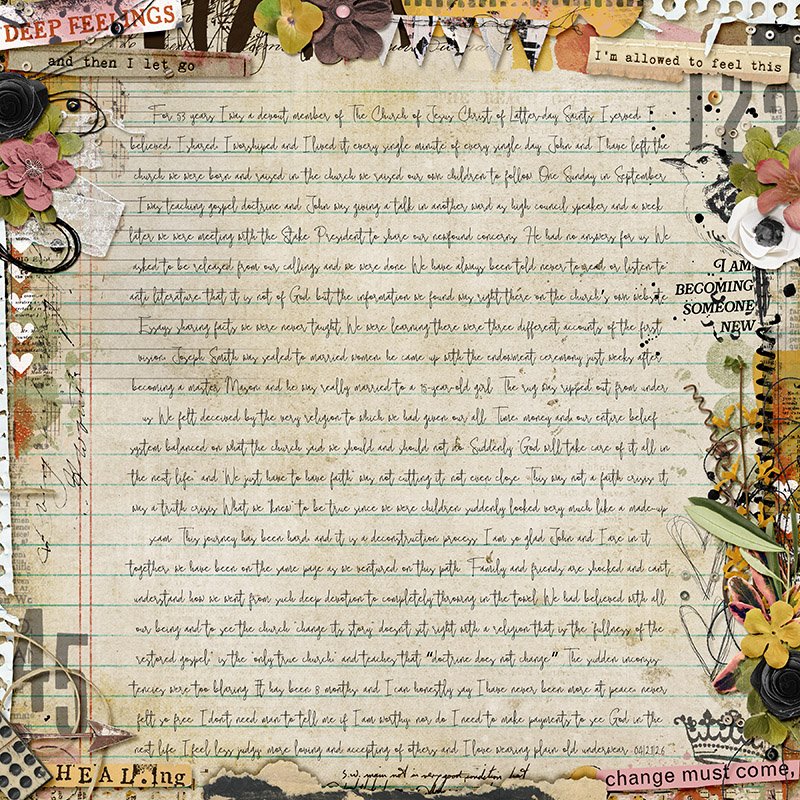 DEEP FEELINGS
and then I let go
I'm allowed to feel this
123
For 53 years I was a devout member of The Church of Jesus Christ of Latter-day Saints. I served. I
believed. I shared. I worshiped and I lived it every single minute of every single day. John and I have left the
church we were born and raised in, the church we raised our own children to follow. One Sunday in September
I was teaching gospel doctrine and John was giving a talk in another ward as high council speaker and a week
later we were meeting with the Stake President to share our newfound concerns. He had no answers for us. We
asked to be released from our callings and we were done. We have always been told never to read or listen to
anti literature, that it is not of God, but the information we found was right there on the church's own website.
Essays sharing facts we were never taught. We were learning there were three different accounts of the first
vision. Joseph Smith was sealed to married women, he came up with the endowment ceremony just weeks after
becoming a master Mason, and he was really married to a 15-year-old girl. The rug was ripped out from under
us. We felt deceived by the very religion to which we had given our all. Time, money, and our entire belief
system balanced on what the church said we should and should not do. Suddenly "God will take care of it all in
the next life," and "We just have to have faith" was not cutting it, not even close. This was not a faith crisis, it
was a truth crisis. What we "knew" to be true since we were children suddenly looked very much like a made-up
scam. This journey has been hard and it is a deconstruction process. I am so glad John and I are in it
together, we have been on the same page as we ventured on this path. Family and friends are shocked and can't
understand how we went from such deep devotion to completely throwing in the towel. We had believed with all
our being and to see the church "change its story" doesn't sit right with a religion that is the "fullness of the
restored gospel," is the "only true church," and teaches that "doctrine does not change." The sudden inconsis-
tencies were too blaring. It has been 8 months and I can honestly say I have never been more at peace, never
felt so free. I don't need man to tell me if I am worthy nor do I need to make payments to see God in the
next life. I feel less judgy, more loving and accepting of others and I love wearing plain old underwear. 04|21|26
I AM
BECOMING
SOMEONE
NEW
45
HEALing
change must come,